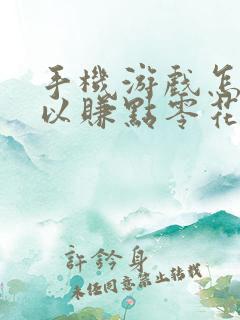 手機游戲怎
以賺點零花
許鈐身
未經同意禁止轉載